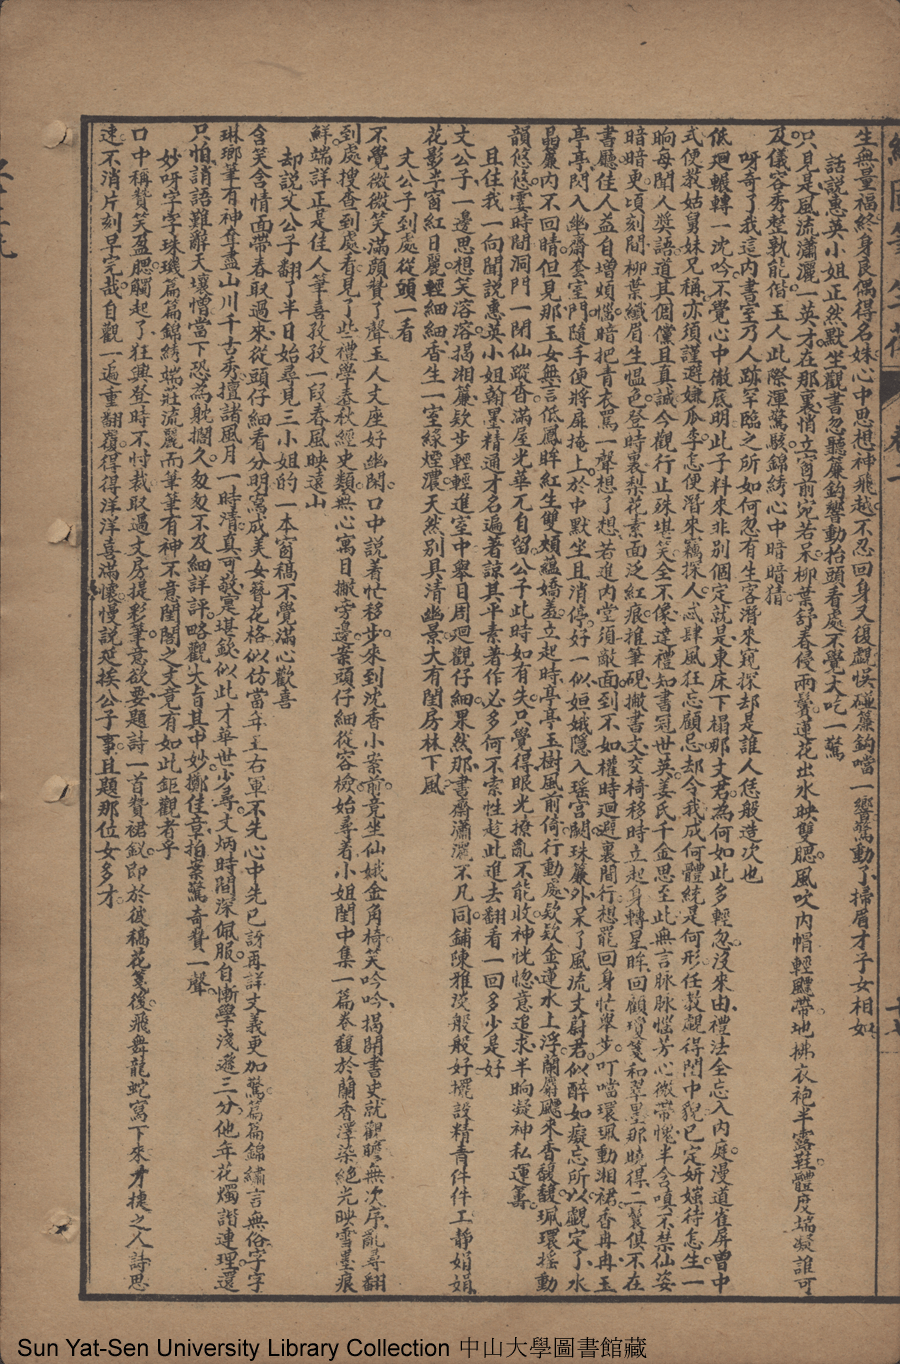 生無量福終身良偶得名姝心中思想神飛越不忍回身又復覷悞碰簾鈎噹一響驚動了掃眉才子女相如
話說惠英小姐正然默坐觀書忽聽簾鈎響動抬頭看處不覺大吃一驚
只見是風流瀟灑一英才在那裏悄立窗前宛若呆柳葉舒春侵兩鬢蓮花出水映雙腮風吹內帽輕飄帶地拂衣袍半露鞋體度端凝誰可
及儀容秀整孰能偕玉人此際渾驚駭錦綉心中暗暗猜
呀奇了我這內書室乃人跡罕臨之所如何忽有生客潛來窺探却是誰人恁般造次也
低廻輾轉一沈吟不覺心中徹底明此子料來非別個定就是東床下榻那文君為何如此多輕忽沒來由禮法全忘入內庭漫道雀屏曾中
式便教姑舅妹兄稱亦須謹避嫌瓜李怎便潛來竊探人忒肆風狂忘顧忌却令我成何體統是何形任教覷得閨中貌已定妍媸待怎生一
晌母聞人獎語道其個儻且真誠今觀行止殊堪笑全不像達禮知書冠世英姜氏千金思至此無言脉脉惱芳心微帶愧半含嗔不禁仙姿
暗暗更頃刻間柳葉纖眉生慍色登時裏梨花素面泛紅痕推筆硯撇書文交椅移時立起身轉星眸回顧瓊箋和翠墨那曉得二鬟俱不在
書廳佳人益自增煩惱暗把青衣罵一聲想了想若進內堂須敵面到不如權時迴避裏間行想罷回身忙舉步叮噹環珮動湘裙香冉冉玉
亭亭閃入幽齋套室門隨手便將扉掩上於中默坐且消停好一似姮娥隱入瑤宫闕珠簾外呆了風流文蔚君似醉如癡忘所以觀定了水
晶簾內不回晴但見那玉女無言低鳳眸紅生雙頰蘊嬌羞立起時亭亭玉樹風前倚行動處欵欵金蓮水上浮蘭麝飄來香馥馥珮環摇動
韻悠悠霎時間洞門一閉仙蹤杳滿屋光華兀自留公子此時如有失只覺得眼光撩亂不能收神恍惚意追求半晌凝神私運籌
且住我一向聞說惠英小姐翰墨精通才名遍著諒其平素著作必多何不索性趁此進去翻看一回多少是好
文公子一邊思想笑溶溶揭湘簾欵步輕輕進室中舉目周廻觀仔細果然那書齋瀟灑不凡同鋪陳雅淡般般好擺設精青件件工静娟娟
花影半窗紅日麗輕細細香生一室緑煙濃天然别具清幽景大有閨房林下風
文公子到處從頭一看
不覺微微笑滿顏贊了聲玉人文座好幽閑口中說着忙移步來到沈香小案前竟坐仙娥金角椅笑吟吟揭開書史就觀瞻無次序亂尋翻
到處搜查到處看見了些禮學春秋經史類無心寓目撇旁邊案頭仔細從容檢始尋着小姐閨中集一篇卷馥於蘭香澤染絕光映雪墨痕
鮮端詳正是佳人筆喜孜孜一段春風映遠山
却說文公子翻了半日始尋見三小姐的一本窗稿不覺滿心歡喜
含笑含情面帶春取過來從頭仔細看分明寫成美女簪花格似仿當年王右軍不先心中先已訝再詳文義更加驚篇篇錦繡言無俗字字
琳瑯筆有神奪盡山川千古秀擅諸風月一時清真可敬實堪欽似此才華世少尋文炳時間深佩服自慚學淺遜三分他年花燭諧連理還
只怕誚語難辭天壤憎當下恐為躭擱久匆匆不及細詳評略觀大旨其中妙擲佳章拍案驚奇贊一聲
妙呀字字珠璣篇篇錦綉端莊流麗而筆筆有神不意閨閣之文竟有如此鉅觀者乎
口中稱贊笑盈腮觸起了狂興登時不忖裁取過文房提彩筆意欲要題詩一首贊裙釵即於彼稿花箋後飛舞龍蛇寫下來才捷之人詩思
速不消片刻早完哉自觀一遍重翻覆得得洋洋喜滿懷慢說延挨公子事且題那位女多才
Sun Yat-Sen University Library Collection 中山大學圖書館藏